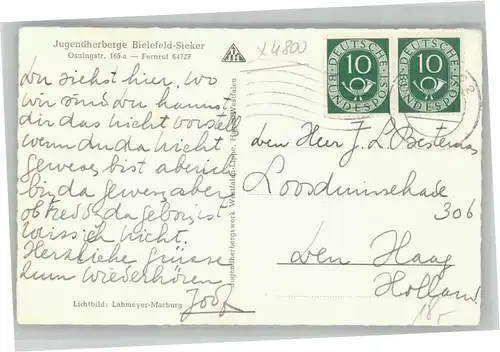 Jugendherberge Bielefeld-Sieker
Osningstr. 165 a — Fernruf 64727
x4800
DEUTSCHE BUNDESPOST 10
DEUTSCHE BUNDESPOST 10
Du siehst hier, wo
wir sind du kannst
dir das nicht vorstell
wenn du da nicht
gewesen bist aber ich
bin da gewesen aber
ob da geboren ist
weiss ich nicht.
Herzliche Grüsse
zum Wiederhören
Lichtbild: Lahmeyer-Marburg
Jugendherbergswerk Westfalen-Lippe, Westfalen
den Herr J. L. Besteman
Loosduinsekade
306
Den Haag
Holland